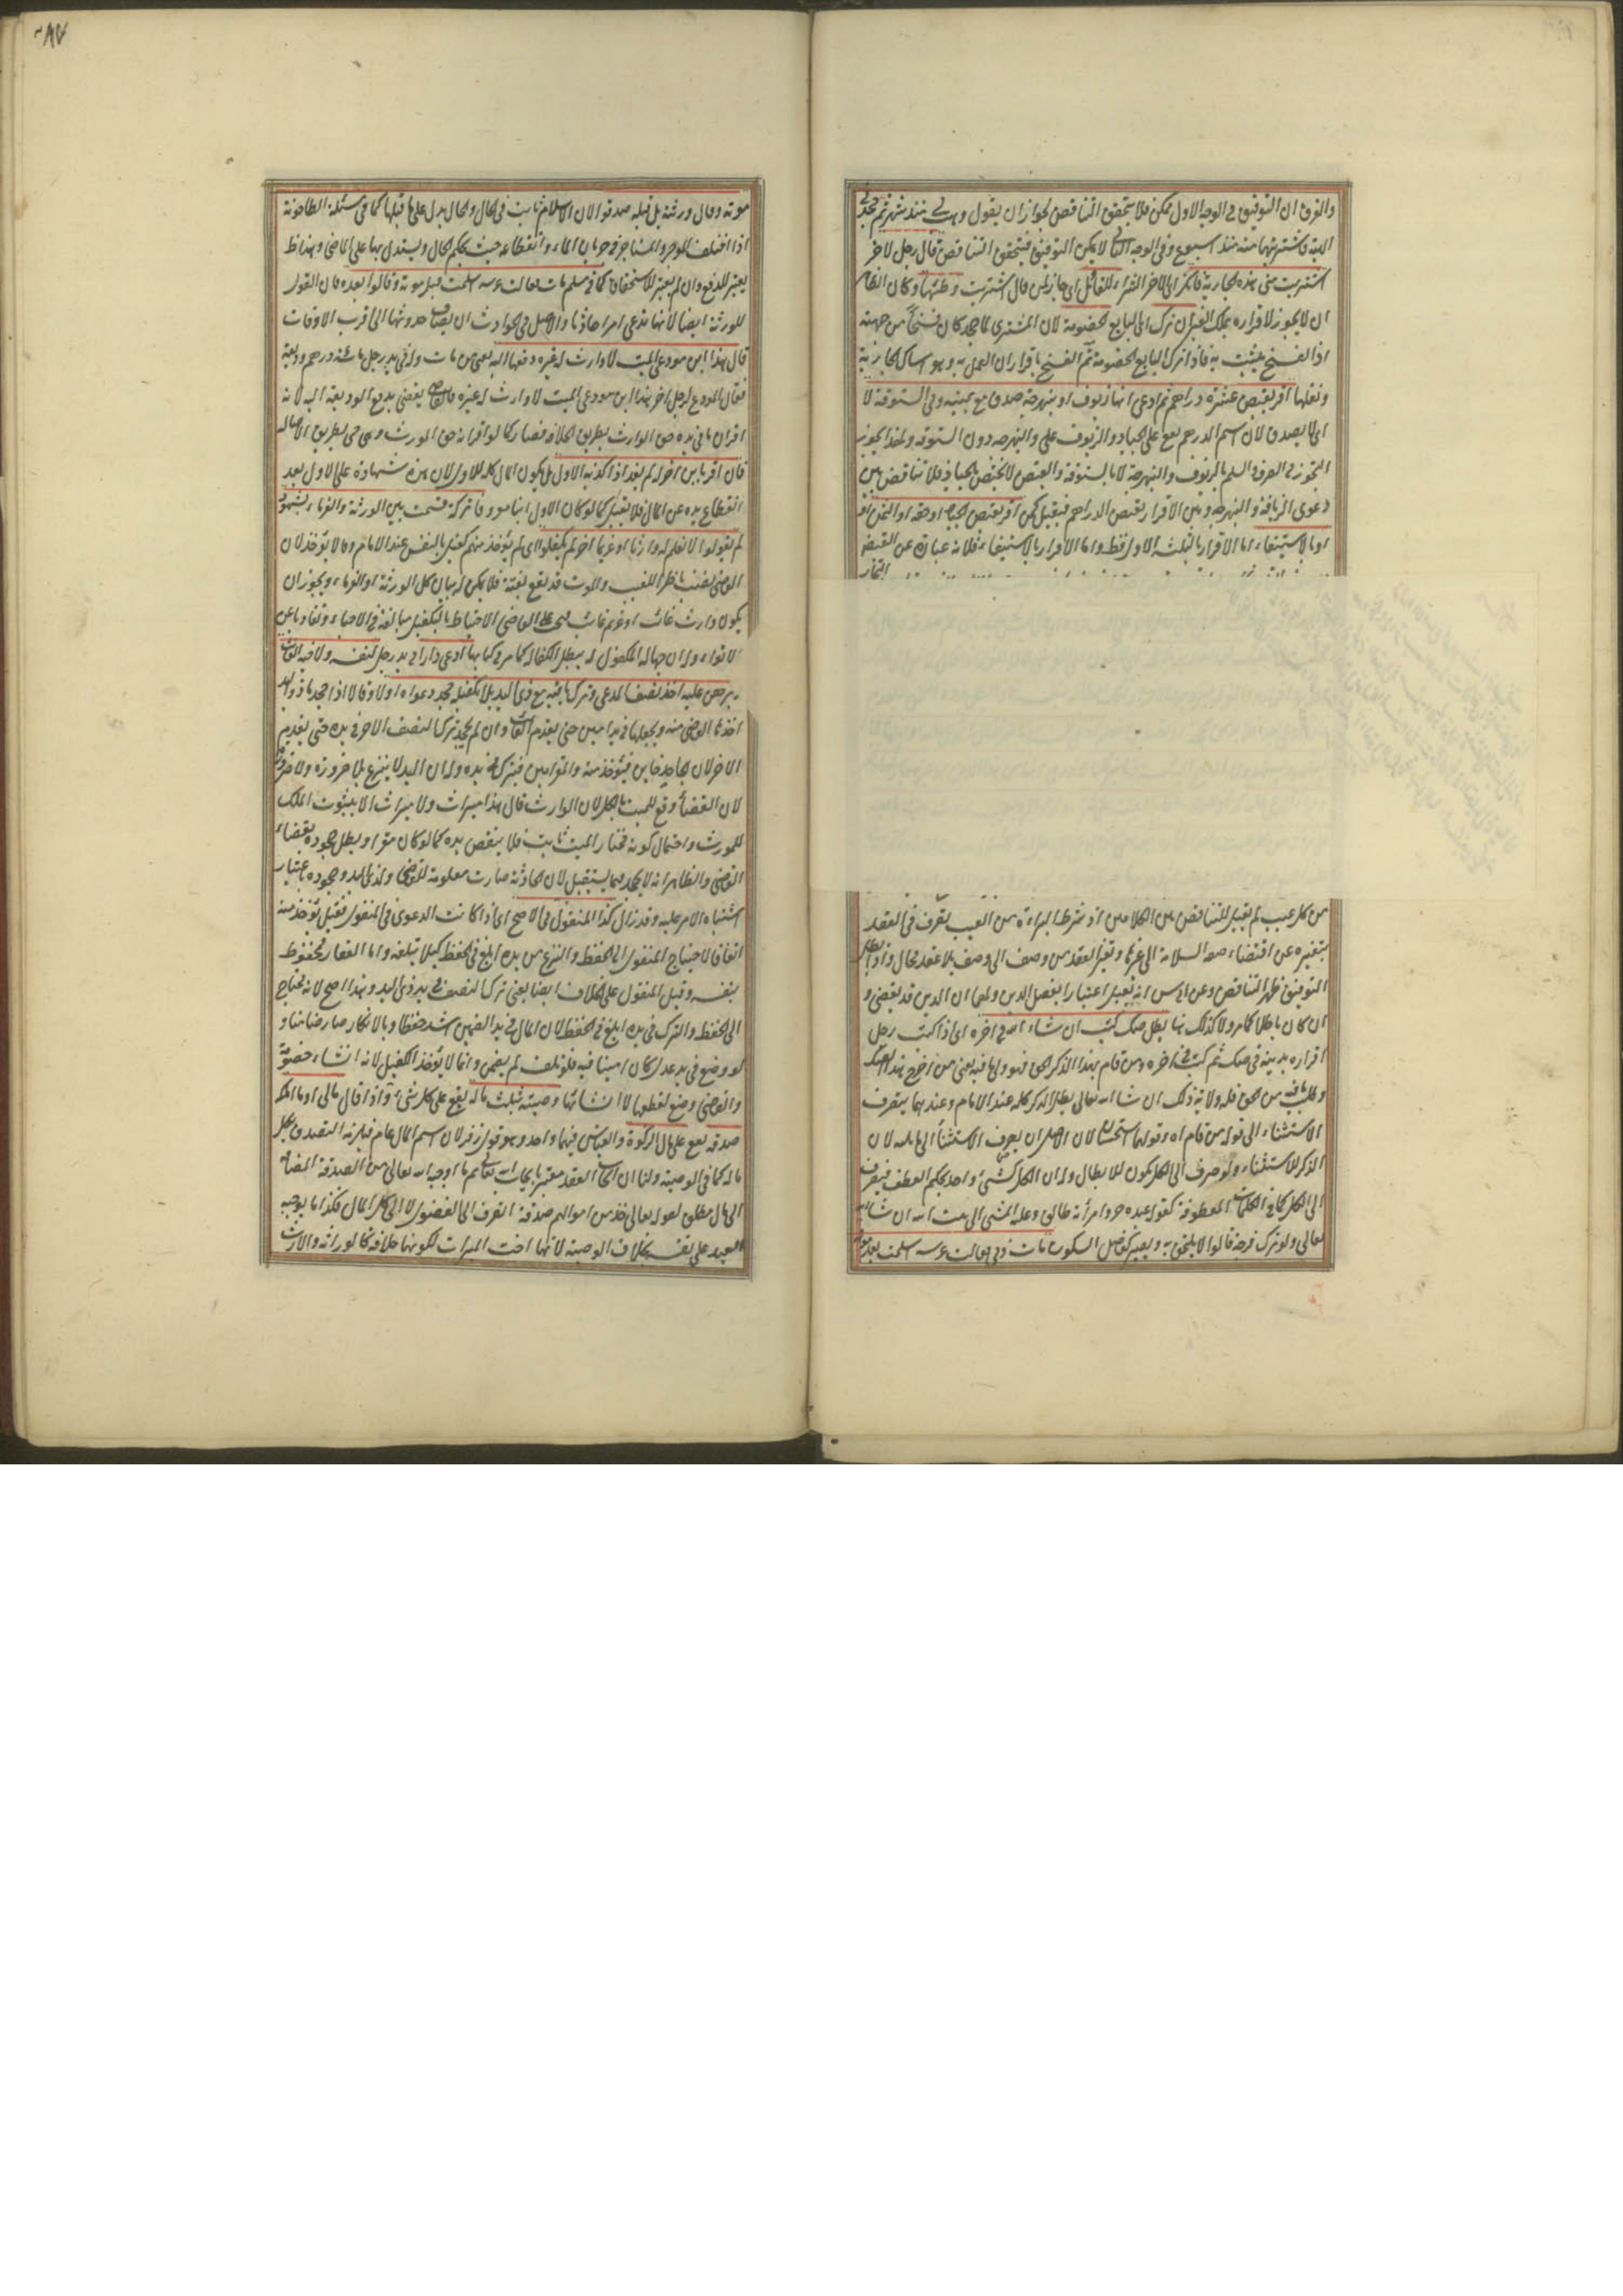 والفرق ان التوفيق في الوجه الاول ممكن فلا يتحقق التناقض لجواز ان يقول وهبت لي منذ شهر ثم جحدني
الهبة فاشتريتها منه منذ اسبوع وفي الوجه الثاني لا يمكن التوفيق فيتحقق التناقض قال رجل لاخر
اشتريت مني هذه الجارية فانكر اي الاخر الشراء للقائل اي جاز لمن قال اشتريت وطئها وكان الظاهر
ان لا يجوز لاقراره بملك الغير ان ترك اي البايع الخصومة لان المشتري لما جحد كان فسخا من جهته
اذ الفسخ يثبت به فاذا ترك البايع الخصومة تم الفسخ باقتران العمل به وهو امساك الجارية
ونقلها اقر بقبض عشرة دراهم ثم ادعى انها زيوف او بنهرجة صدق مع يمينه وفي الستوقة لا
اي لا يصدق لان اسم الدرهم يقع على الجياد والزيوف والنبهرجة دون الستوقة ولهذا يجوز
التجوز في الصرف والسلم بالزيوف والنبهرجة لا بالستوقة والقبض لا يختص بالجياد فلا تناقض بين
دعوى الزيافة والنبهرجة وبين الاقرار بقبض الدراهم فيقبل كمن اقر بقبض الجياد او حقه او الثمن
او بالاستيفاء اما الاقرار بالثلثة الاول فقط واما الاقرار بالاستيفاء فلانه عبارة عن القبض
من كل عيب لم يقبل للتناقض بين الكلامين اذ شرط البراءة من العيب تصرف في العقد
بتغييره عن اقتضاء صفة السلامة الى غيرها وتغير العقد من وصف الى وصف بلا عقد محال واذا بطل
التوفيق ظهر التناقض وعن ابي يوسف انه يقبل اعتبارا بفصل الدين ولهما ان الدين قد يقضى و
ان كان باطلا كما مر ولا كذلك هنا بطل صك كتب ان شاء الله في اخره اي اذا كتب رجل
اقراره بدينه في صك ثم كتب في اخره ومن قام بهذا الذكر الحق فهو ولي ما فيه يعني من اخرج هذا الصك
وطلب ما فيه من الحق فله ولاية ذلك ان شاء الله تعالى بطل الذكر كله عند الامام وعندهما يصرف
الاستثناء الى قوله من قام اه وقولهما استحسان لان الاصل ان يصرف الاستثناء الى ما يليه لان
الذكر للاستثناء ولو صرف الى الكل يكون للابطال وله ان الكل كشيء واحد بحكم العطف فيصرف
الى الكل كما في الكلمات المعطوفة كقوله عبده حر وامرأته طالق وعليه المشي الى بيت الله ان شاء الله
تعالى ولو ترك فرجة قالوا لا يلتحق به ويصير كفاصل السكوت مات ذمي فقالت عرسه اسلمت بعد موته
موته وقال ورثته بل قبله صدقوا لان الاسلام ثابت في الحال والحال يدل على ما قبلها كما في مسئلة الطاحونة
اذا اختلف الموجر والمستاجر في جريان الماء وانقطاعه حيث يحكم الحال ويستدل بها على الماضي وهذا ظاهر
يعتبر للدفع وان لم يعتبر للاستحقاق كما في مسلم مات فقالت عرسه اسلمت قبل موته وقالوا بعده فان القول
للورثة ايضا لانها تدعي امرا حادثا والاصل في الحوادث ان يضاف حدوثها الى اقرب الاوقات
قال هذا ابن مودعي الميت لا وارث له غيره دفعها اليه يعني من مات وله في يد رجل مائة درهم وديعة
فقال المودع لرجل اخر هذا ابن مودعي الميت لا وارث له غيره فالقاضي يقضي بدفع الوديعة اليه لانه
اقر ان ما في يده حق الوارث بطريق الخلافة فصار كما لو اقر انه حق المورث وهي حي بطريق الاصالة
فان اقر بابن اخر له لم يفد اذا كذبه الاول بل يكون المال كله للاول لان هذه شهادة على الاول بعد
انقطاع يده عن المال فلا يقبل كما لو كان الاول ابنا معروفا تركة قسمت بين الورثة والغرماء بشهود
لم يقولوا لا نعلم له وارثا او غريما اخر لم يكفلوا اي لم يؤخذ منهم كفيل بالنفس عند الامام وقالا يؤخذ لان
القاضي نصب ناظرا للغيب والموت قد يقع بغتة فلا يمكن له بيان كل الورثة او الغرماء ويجوز ان
يكون له وارث غائب او غريم غائب فيجب على القاضي الاحتياط بالتكفيل مبالغة في الاحياء وتفاديا عن
الاتواء وله ان جهالة المكفول له يبطل الكفالة كما مر في كتابها ادعى دارا في يد رجل لنفسه ولاخيه الغائب
برهن عليه اخذ نصف المدعي وترك باقيه مع ذي اليد بلا تكفيله جحد دعواه او لا وقالا اذا جحد ذو اليد
اخذها القاضي منه ويجعلها في يد امين حتى يقدم الغائب وان لم يجحد ترك النصف الاخر في يده حتى يقدم
الاخر لان الجاحد خاين فيؤخذ منه والمقر امين فيترك في يده وله ان اليد لا ينزع بلا ضرورة ولا ضرورة
لان القضاء وقع للميت بالكل لان الوارث قال هذا ميراث ولا ميراث الا بثبوت الملك
للمورث واحتمال كونه مختار الميت ثابت فلا ينقض يده كما لو كان مقرا وبطل جحوده بقضاء
القاضي والظاهر انه لا يجحد فيما يستقبل لان الحادثة صارت معلومة للقاضي ولذي اليد وجحوده باعتبار
اشتباه الامر عليه وقد زال كذا المنقول في الاصح اي اذا كانت الدعوى في المنقول فقيل يؤخذ منه
اتفاقا لاحتياج المنقول الى الحفظ والنزع من يده ابلغ في الحفظ كيلا يتلفه واما العقار محفوظ
بنفسه وقيل المنقول على الخلاف ايضا يعني ترك النصف في يد ذي اليد وهذا اصح لانه يحتاج
الى الحفظ والترك في يده ابلغ في الحفظ لان المال في يد الضمين اشد حفظا وبالانكار صار ضامنا و
لو وضع في يد عدل كان امينا فيه فلو تلف لم يضمن وانما لا يؤخذ الكفيل لانه انشاء خصومة
والقاضي وضع لقطعها لا انشائها وصيته بثلث ماله يقع على كل شيء واذا قال مالي او ما املك
صدقة يقع على مال الزكوة والقياس فيهما واحد وهو قول زفر لان اسم المال عام فيلزمه التصدق بكل
ماله كما في الوصية ولنا ان ايجاب العبد معتبر بايجاب الله تعالى ثم ما اوجبه الله تعالى من الصدقة المضافة
الى مال مطلق لقوله تعالى خذ من اموالهم صدقة انصرف الى الفضول لا الى كل المال فكذا ما يوجبه
العبد على نفسه بخلاف الوصية لانها اخت الميراث لكونها خلافة كالوراثة والارث